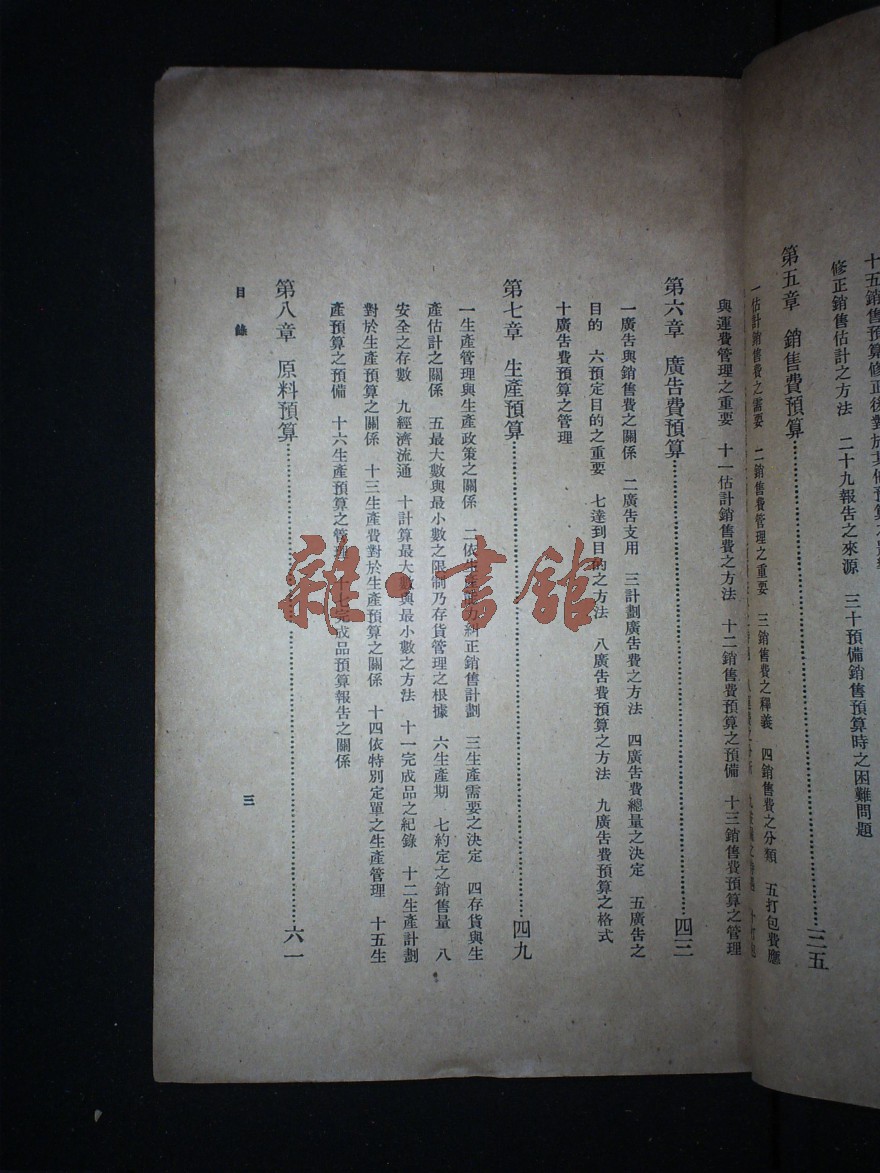 修正銷售估計之方法　二十九報告之來源　三十預備銷售預算時之困難問題
第五章　銷售費預算…………三五
一估計銷售費之需要　二銷售費管理之重要　三銷售費之釋義　四銷售費之分類　五打包費應
與運費管理之重要　十一估計銷售費之方法　十二銷售費預算之預備　十三銷售費預算之管理
第六章　廣告費預算…………四三
一廣告與銷售費之關係　二廣告支用　三計劃廣告費之方法　四廣告費總量之決定　五廣告之
目的　六預定目的之重要　七達到目的之方法　八廣告費預算之方法　九廣告費預算之格式
十廣告費預算之管理
第七章　生產預算…………四九
一生產管理與生產政策之關係　二依生產能力糾正銷售計劃　三生產需要之決定　四存貨與生
產估計之關係　五最大數與最小數之限制乃存貨管理之根據　六生產期　七約定之銷售量　八
安全之存數　九經濟流通　十計算最大數與最小數之方法　十一完成品之紀錄　十二生產計劃
對於生產預算之關係　十三生產費對於生產預算之關係　十四依特別定單之生產管理　十五生
產預算之預備　十六生產預算之管理　十七完成品預算報告之關係
第八章　原料預算…………六一
目錄
三
雜·書館